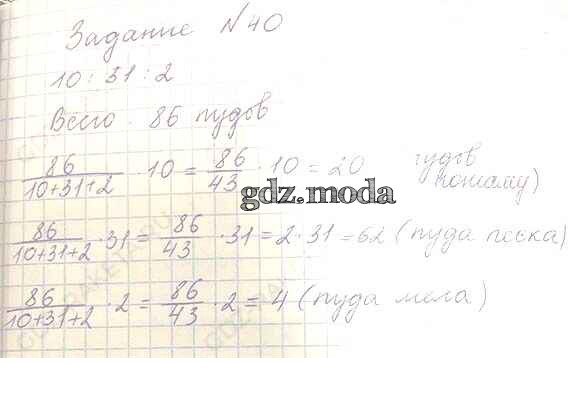 Задание №40
10 : 31 : 2
Всего 86 пудов
86/(10+31+2) · 10 = 86/43 · 10 = 20 пудов поташу)
gdz.moda
86/(10+31+2) · 31 = 86/43 · 31 = 2 · 31 = 62 (пуда песка)
86/(10+31+2) · 2 = 86/43 · 2 = 4 (пуда мела)